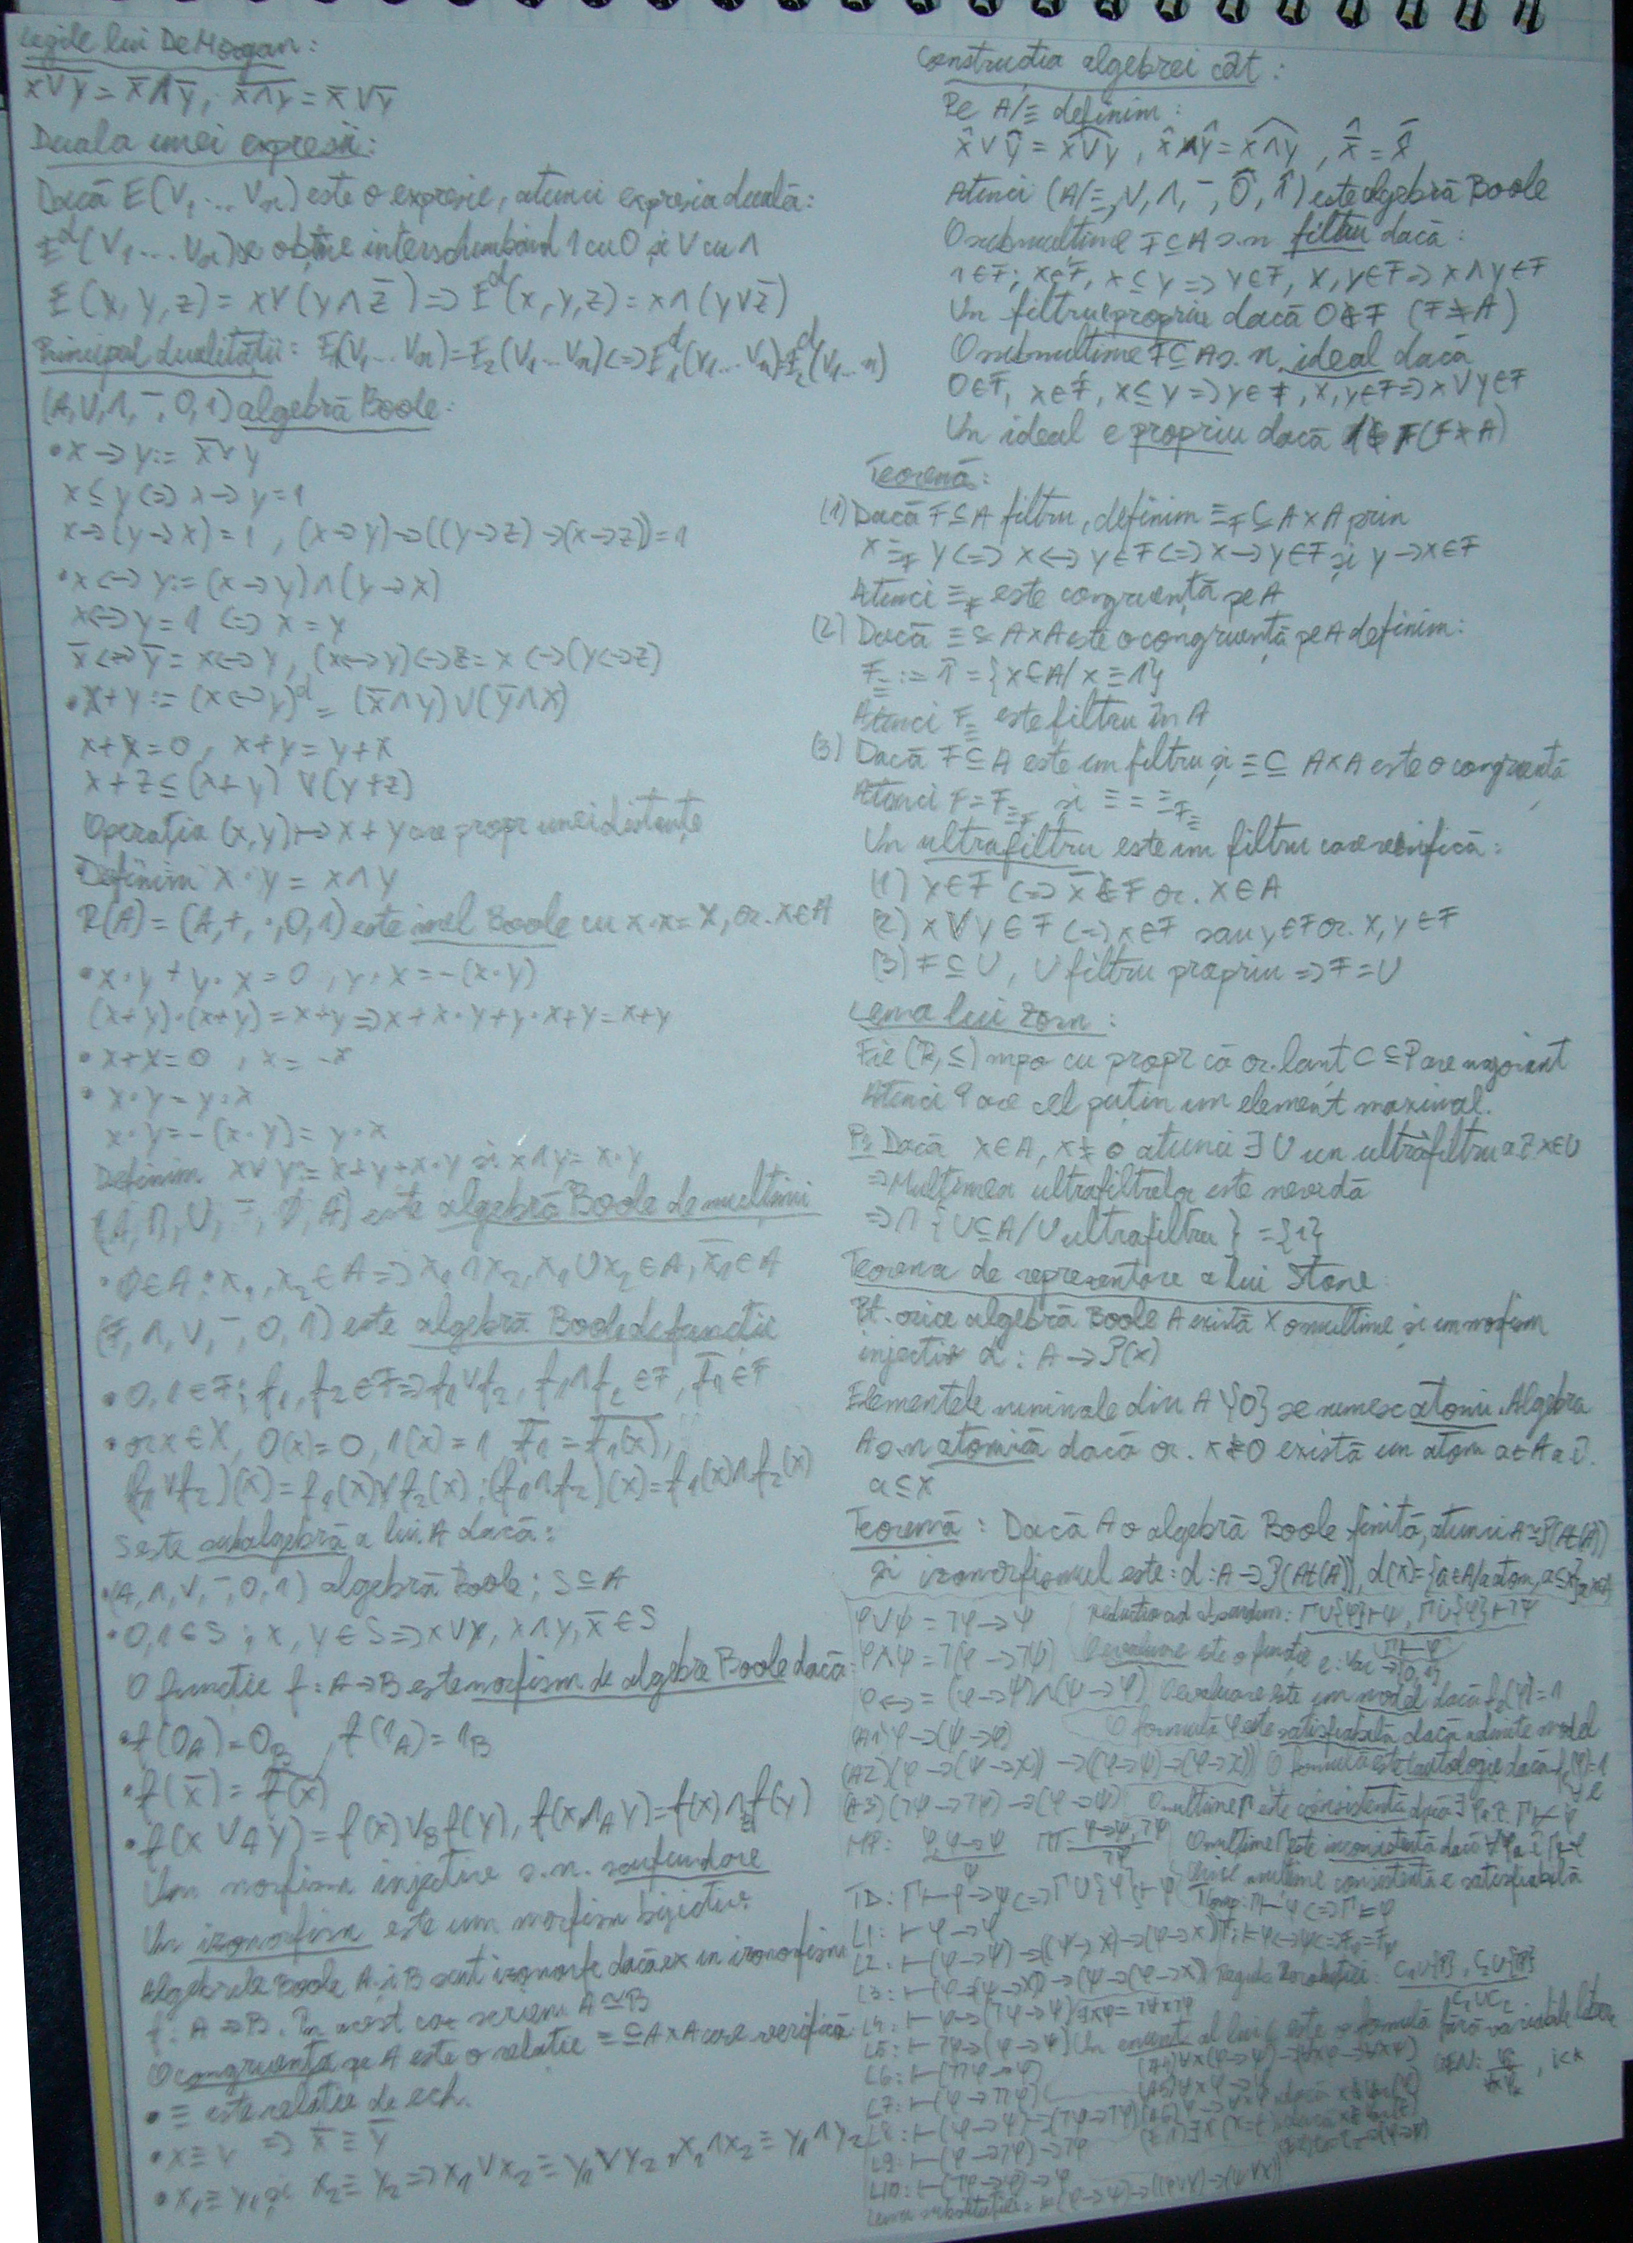 Legile lui DeMorgan:
x̅V̅y̅ = x̅Λy̅, x̅Λ̅y̅ = x̅Vy̅
Duala unei expresii:
Dacă E(V₁...Vₙ) este o expresie, atunci expresia duală:
Eᵈ(V₁...Vₙ) se obține interschimbând 1 cu 0 și V cu Λ
E(x, y, z) = xV(yΛz̅) => Eᵈ(x, y, z) = xΛ(yVz̅)
Principul dualității: E₁(V₁...Vₙ)=E₂(V₁...Vₙ)<=>E₁ᵈ(V₁...Vₙ)=E₂ᵈ(V₁...n)
(A,V,Λ,¯,0,1) algebră Boole:
• x → y := x̅Vy
x ≤ y <=> x → y = 1
x→(y→x) = 1, (x→y)→((y→z)→(x→z))=1
• x<->y := (x→y)Λ(y→x)
x<->y = 1 <=> x = y
x̅<->y̅ = x<->y, (x<->y)<->z = x<->(y<->z)
• x+y := (x<->y)ᵈ = (x̅Λy)V(y̅Λx)
x+x=0, x+y = y+x
x+z ≤ (x+y) V(y+z)
Operația (x,y)↦x+y are propr unei distanțe
Definim x·y = xΛy
R(A) = (A,+,·,0,1) este inel Boole cu x·x = x, or. x∈A
• x·y + y·x = 0, y·x = -(x·y)
(x+y)·(x+y) = x+y => x+x·y+y·x+y = x+y
• x+x=0, x = -x
• x·y = y·x
x·y = -(x·y) = y·x
Definim xVy = x+y+x·y și xΛy = x·y
este algebră Boole de mulțimi
(F,Λ,V,¯,0,1) este algebră Boole de funcții
• 0,1∈F; f₁, f₂∈F=>f₁Vf₂, f₁Λf₂∈F, f̅₁∈F
• or x∈X, 0(x)=0, 1(x)=1
(f₁Vf₂)(x) = f₁(x)Vf₂(x); (f₁Λf₂)(x)=f₁(x)Λf₂(x)
S este subalgebră a lui A dacă:
• (A,Λ,V,¯,0,1) algebră Boole; S⊆A
• 0,1∈S; x, y∈S=>xVy, xΛy, x̅∈S
O funcție f:A→B este morfism de algebre Boole dacă:
• f(0_A)=0_B, f(1_A) = 1_B
• f(x̅) = f̅(̅x̅)̅
• f(x V_A y) = f(x) V_B f(y), f(x Λ_A y)=f(x)Λ_B f(y)
Un morfism injectiv s.n. scufundare
Un izomorfism este un morfism bijectiv.
Algebrele Boole A și B sunt izomorfe dacă ex un izomorfism
f: A→B. În acest caz scriem A≃B
O congruență pe A este o relație ≡⊆A×A care verifică:
• ≡ este relație de ech.
• x≡y => x̅≡y̅
• x₁≡y₁ și x₂≡y₂=>x₁Vx₂≡y₁Vy₂, x₁Λx₂≡y₁Λy₂
Construcția algebrei cât:
Pe A/≡ definim:
x̂Vŷ = x̂V̂ŷ, x̂Λŷ = x̂Λ̂ŷ
Atunci (A/≡,V,Λ,¯,0̂,1̂) este algebră Boole
O submulțime F⊆A s.n filtru dacă:
1∈F; x∈F, x≤y=>y∈F, x,y∈F=>xΛy∈F
Un filtru e propriu dacă 0∉F (F≠A)
O submulțime F⊆A s.n. ideal dacă
0∈F, x∈F, x≤y=>y∈F, x,y∈F=>xVy∈F
Un ideal e propriu dacă 1∉F(F≠A)
Teoremă:
(1) Dacă F⊆A filtru, definim ≡_F⊆A×A prin
x≡_F y<=>x<->y∈F<=>x→y∈F și y→x∈F
Atunci ≡_F este congruență pe A
(2) Dacă ≡⊆A×A este o congruență pe A definim:
F_≡ := 1̂ = {x∈A/ x≡1}
Atunci F_≡ este filtru în A
(3) Dacă F⊆A este un filtru și ≡⊆A×A este o congruență
Atunci F=F_≡_F și ≡ = ≡_F_≡
Un ultrafiltru este un filtru care verifică:
(1) x∈F <=> x̅∉F or. x∈A
(2) xVy∈F <=> x∈F sau y∈F or. x,y∈F
(3) F⊆U, U filtru propriu => F=U
Lema lui Zorn:
Fie (P,≤) mpo cu propr că or. lanț C⊆P are majorant
Atunci P are cel puțin un element maximal.
Dacă x∈A, x≠0 atunci ∃U un ultrafiltru aî x∈U
=>Mulțimea ultrafiltrelor este nevidă
=>∩{U⊆A/U ultrafiltru} = {1}
Teorema de reprezentare a lui Stone:
Pt. orice algebră Boole A există X o mulțime și un morfism
injectiv d: A→P(x)
Elementele minimale din A\{0} se numesc atomi. Algebra
A s.n atomică dacă or. x≠0 există un atom a∈A aî.
a≤x
Teoremă: Dacă A o algebră Boole finită, atunci A≃P(At(A))
și izomorfismul este: d:A→P(At(A)), d(x)={a∈A/a atom, a≤x}
φVψ = ¬φ→ψ reductio ad absurdum: Γ∪{φ}⊢ψ, Γ∪{φ}⊢¬ψ
φΛψ = ¬(φ→¬ψ) O evaluare este o funcție e:Var→{0,1}
φ<-> = (φ→ψ)Λ(ψ→φ) O evaluare este un model dacă fₑ(φ)=1
(A1) φ→(ψ→φ) O formulă φ este satisfiabilă dacă admite model
(A2) (φ→(ψ→χ))→((φ→ψ)→(φ→χ)) O formulă este tautologie dacă fₑ(φ)=1
(A3) (¬φ→¬ψ)→(ψ→φ) O mulțime Γ este consistentă dacă ∃φ aî. Γ⊬φ
MP: φ,φ→ψ / ψ MT: φ→ψ,¬ψ / ¬φ O mulțime Γ este inconsistentă dacă ∀φ aî Γ⊢φ
Orice mulțime consistentă e satisfiabilă
TD: Γ⊢φ→ψ<=>Γ∪{φ}⊢ψ
L1: ⊢φ→φ
L2: ⊢(φ→ψ)→((ψ→χ)→(φ→χ))
L3: ⊢(φ→(ψ→χ))→(ψ→(φ→χ)) Regula Rezoluției:
L4: ⊢φ→(¬φ→ψ) ∃xφ=¬∀x¬φ
L5: ⊢¬φ→(φ→ψ) Un enunț al lui L este o formulă fără variabile libere
L6: ⊢(¬¬φ→φ)
L7: ⊢(φ→¬¬φ)
L8: ⊢(φ→ψ)→(¬ψ→¬φ)
L9: ⊢(φ→¬φ)→¬φ
L10: ⊢(¬φ→φ)→φ
Lema substituției: